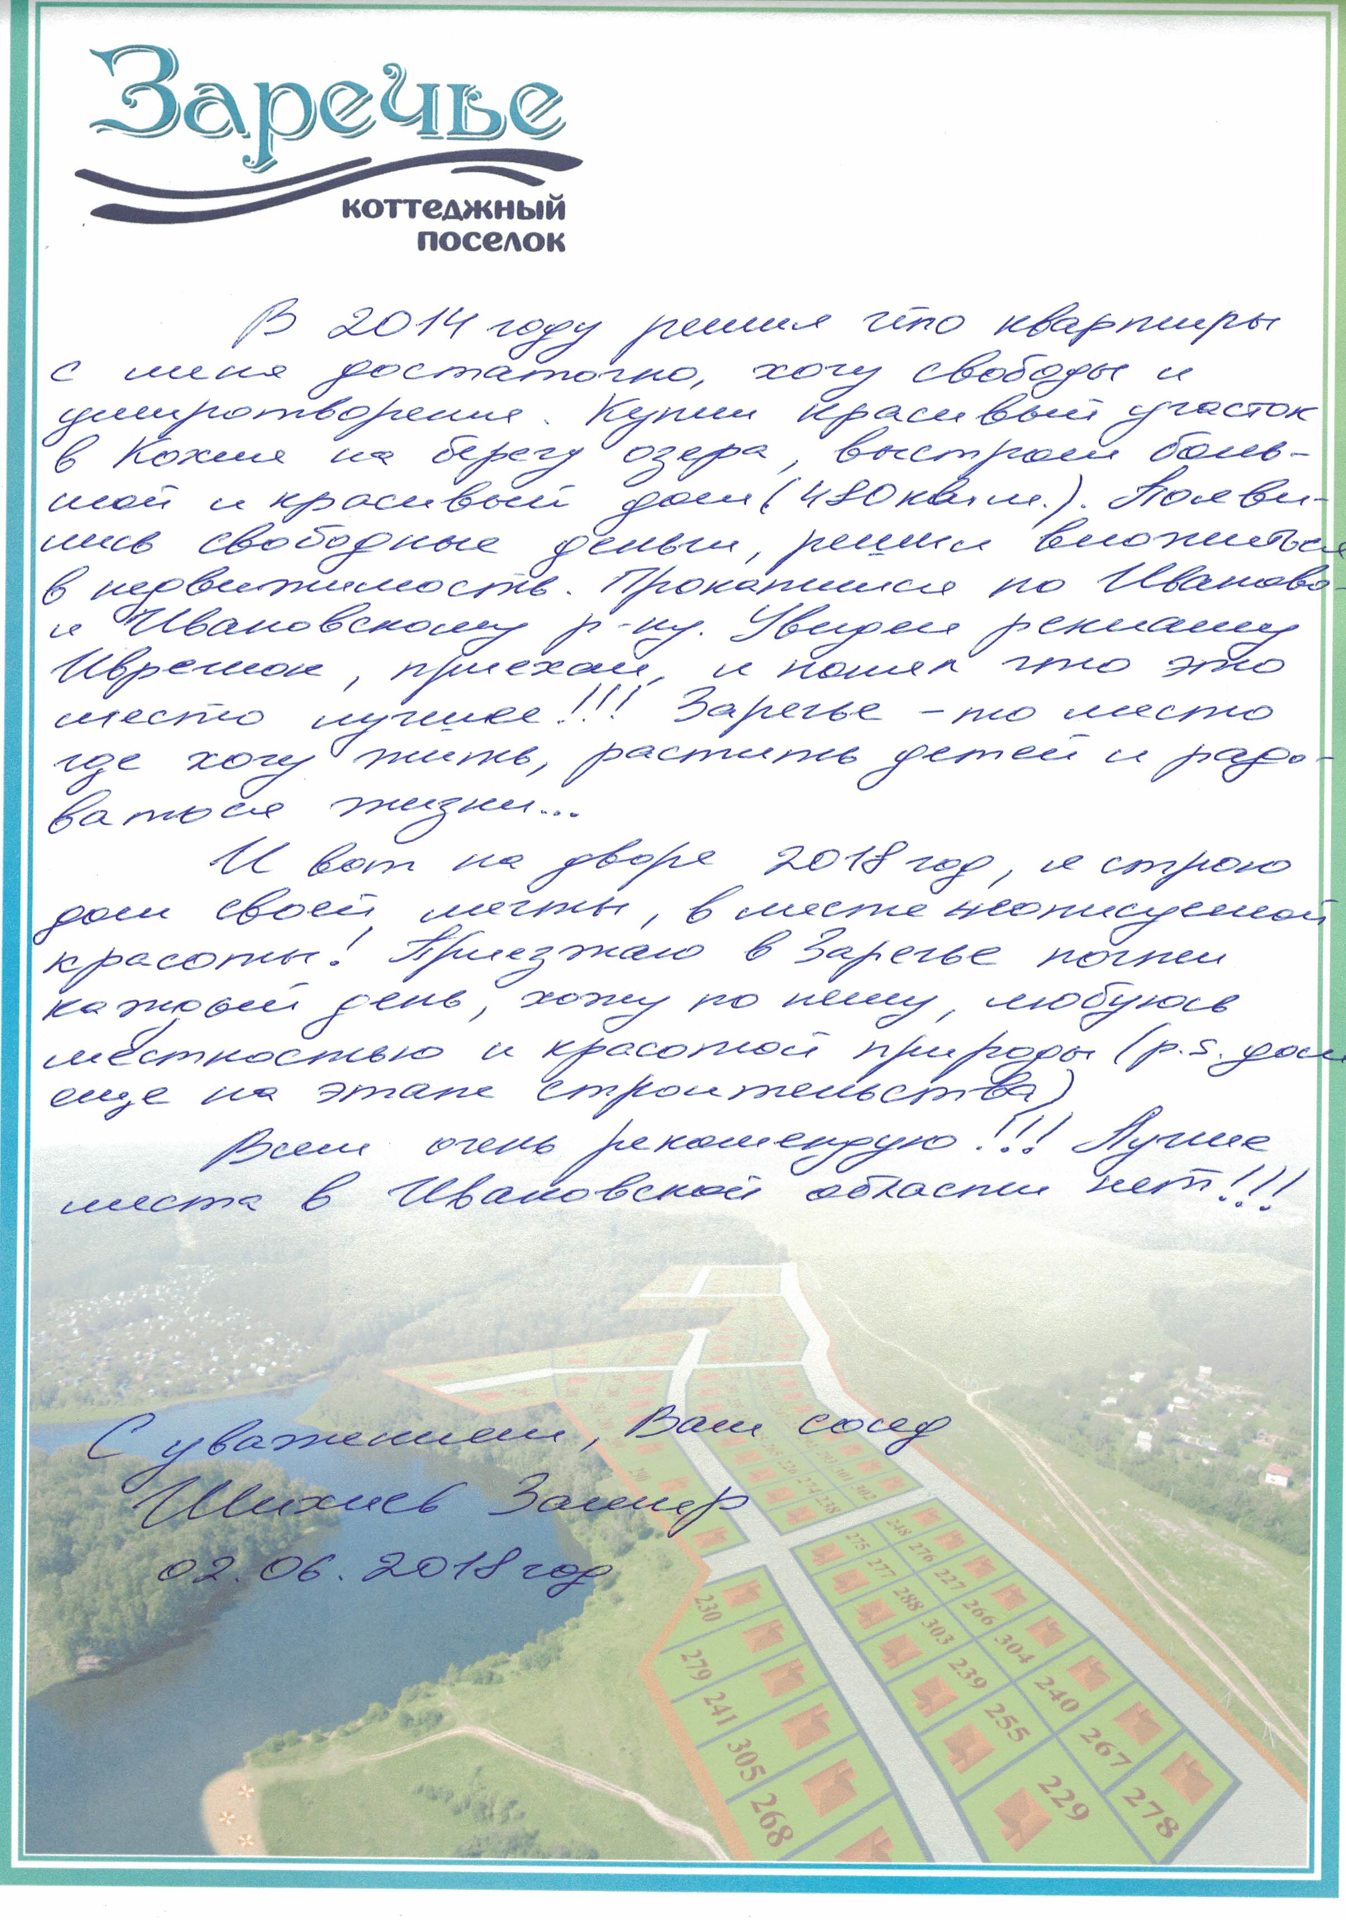 Заречье
коттеджный
поселок
В 2014 году решил что квартиры
с меня достаточно, хочу свободы и
умиротворения. Купил красивый участок
в Кохме на берегу озера, выстроил боль-
шой и красивый дом (480 кв.м.). Появи-
лись свободные деньги, решил вложиться
в недвижимость. Прокатился по Иваново-
и Ивановскому р-ну. Увидел рекламу
приехал, и понял что это
место лучшее!!! Заречье - то место
где хочу жить, растить детей и радо-
ваться жизни...
И вот на дворе 2018 год, я строю
дом своей мечты, в месте неописуемой
красоты! Приезжаю в Заречье почти
каждый день, хожу по нему, любуюсь
местностью и красотой природы (p.s. дом
еще на этапе строительства)
Всем очень рекомендую!!! Лучше
места в Ивановской области нет!!!
С уважением, Ваш сосед
Шихиев Замир
02.06.2018 год
290
226
274
238
301
302
248
275
276
277
227
288
266
303
304
239
240
255
267
229
278
230
279
241
305
268